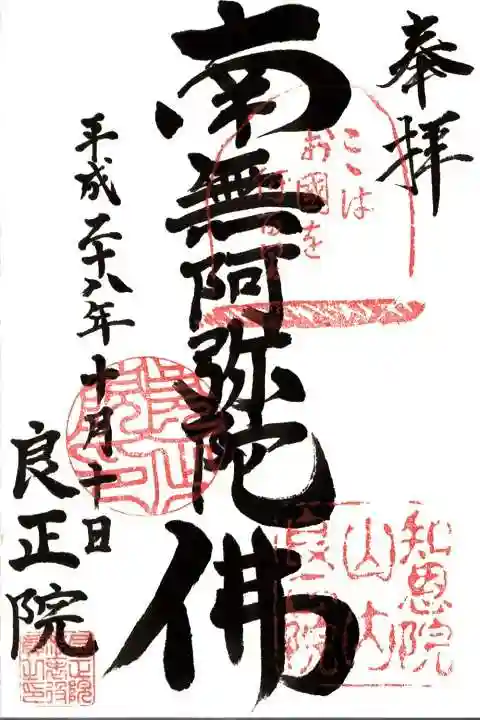 奉拝
ここは
お國を
南無阿弥陀佛
知恩院
山内
良正院
平成二十八年十月十日
良正院